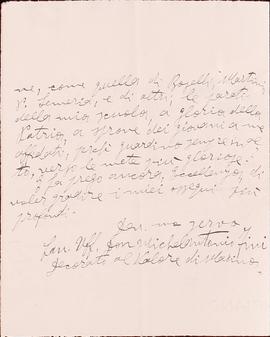 ne, come quella di Boselli, Martini,
P. Semeria, e di altri, le pareti
della mia scuola, a gloria della
Patria, a sprone dei giovani a me
affidati, perché guardino sempre in al
to, verso le mete più gloriose.
La prego ancora, Eccellenza, di
voler gradire i miei ossequi più
profondi.
Dev.mo servo
Cav. Uff. Don Michelantonio Fini
Decorato al Valore di Marina